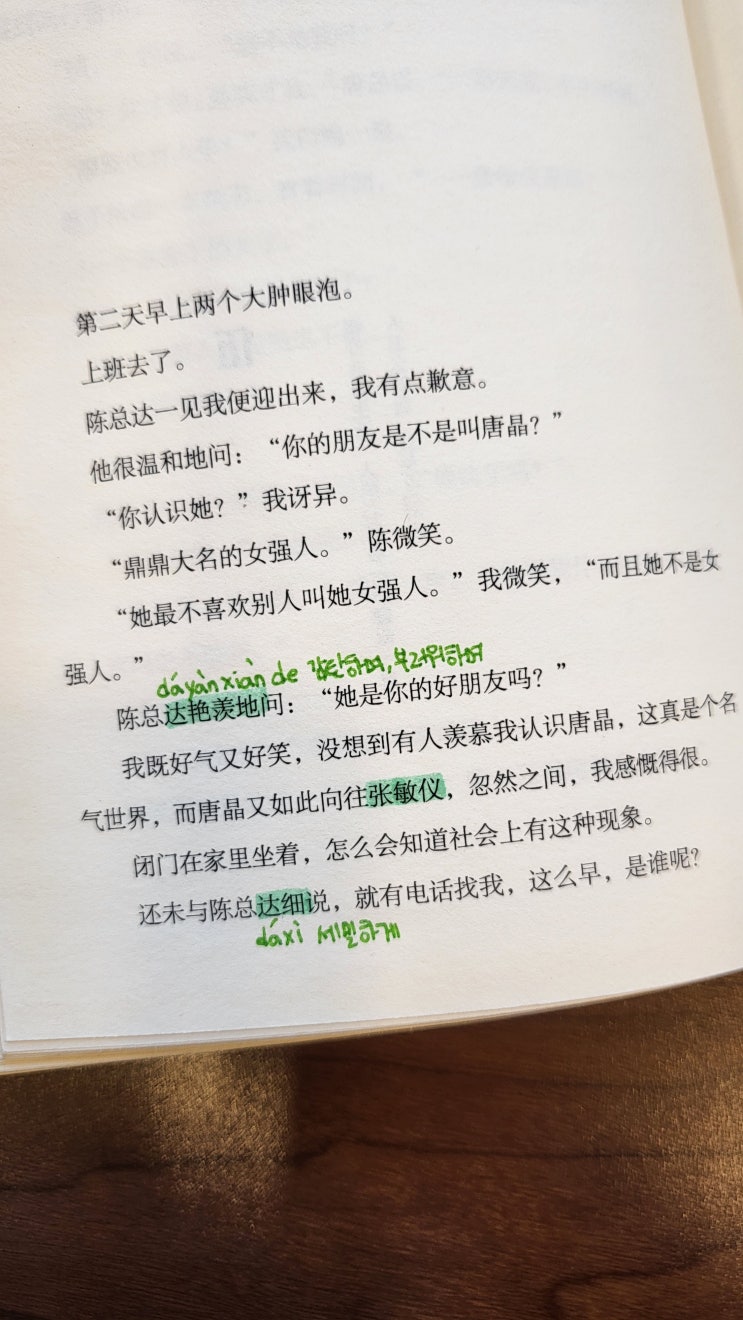 第二天早上两个大肿眼泡。
上班去了。
陈总达一见我便迎出来，我有点歉意。
他很温和地问：“你的朋友是不是叫唐晶？”
“你认识她？”我讶异。
“鼎鼎大名的女强人。”陈微笑。
“她最不喜欢别人叫她女强人。”我微笑，“而且她不是女
强人。”
dáyànxiàn de 감탄하며, 부러워하며
陈总达艳羡地问：“她是你的好朋友吗？”
我既好气又好笑，没想到有人羡慕我认识唐晶，这真是个名
气世界，而唐晶又如此向往张敏仪，忽然之间，我感慨得很。
闭门在家里坐着，怎么会知道社会上有这种现象。
还未与陈总达细说，就有电话找我，这么早，是谁呢？
dáxì 세밀하게